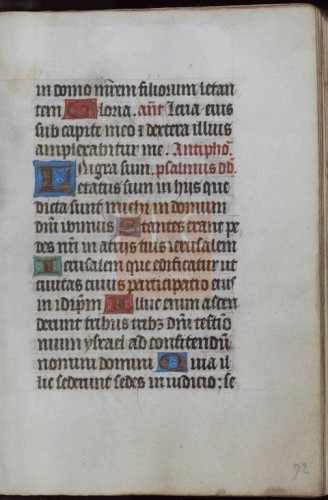 in domo mrem filiorum letan
tem Gloria. ant Leua eius
sub capite meo & dextera illius
amplexabitur me. Antipho.
Nigra sum. psalmus dd.
Letatus sum in hijs que
dicta sunt michi in domum
dni ibimus Stantes erant pe
des nri in atrijs tuis ierusalem
Ierusalem que edificatur ut
ciuitas cuius participatio eius
in idipm Illuc enim ascen
derunt tribus tribz dni testio
nium ysrael ad confitendu
nomini domini Quia il
lic sederunt sedes in iudicio: se
92